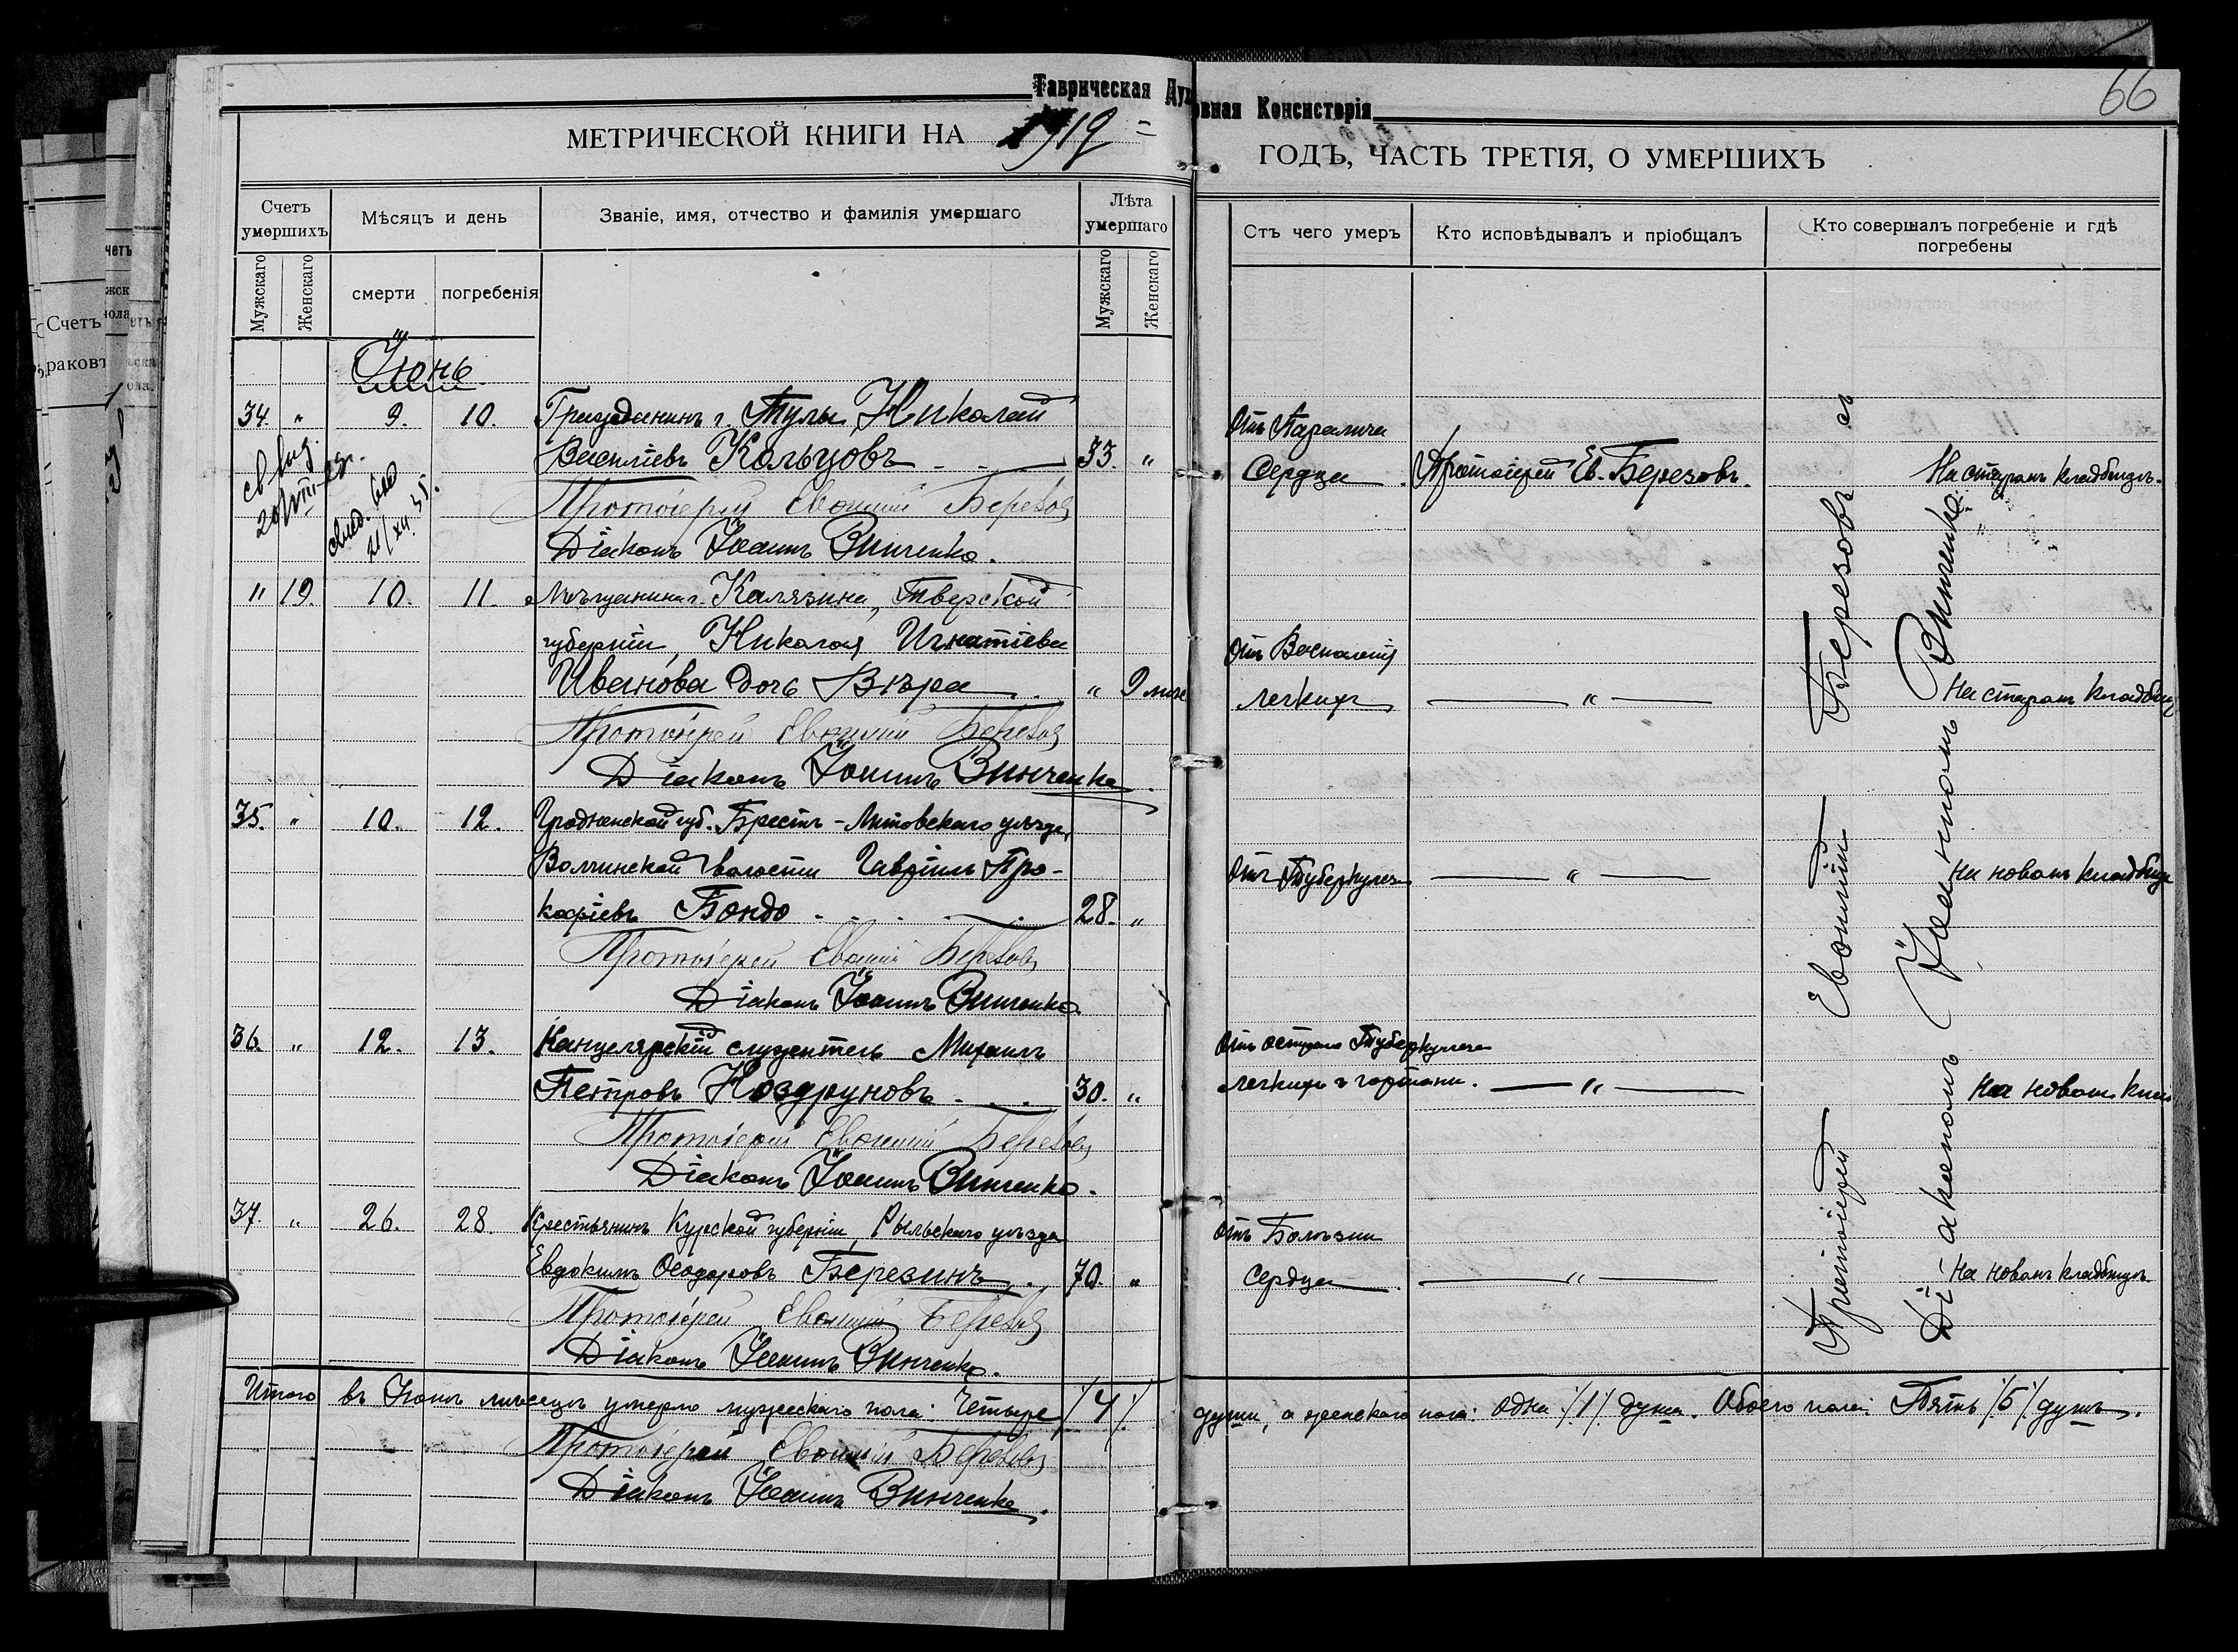 Таврическая Духовная Консисторія
66
МЕТРИЧЕСКОЙ КНИГИ НА 1919 =
ГОДЪ, ЧАСТЬ ТРЕТІЯ, О УМЕРШИХЪ
Счетъ умершихъ
Мѣсяцъ и день
Званіе, имя, отчество и фамилія умершаго
Лѣта умершаго
Стъ чего умеръ
Кто исповѣдывалъ и пріобщалъ
Кто совершалъ погребеніе и гдѣ погребены
Мужскаго
Женскаго
смерти
погребенія
Мужскаго
Женскаго
Іюнь
34. " 9. 10. Гражданинъ г. Тулы, Николай
Васильевъ Кольцовъ 33. "
Отъ Паралича
Сердца. Протоіерей Ев. Березовъ. На старомъ кладбищѣ.
Протоіерей Евѳимій Березовъ
Діаконъ Іоаннъ Винченко.
" 19. 10. 11. Мѣщанина г. Калязина, Тверской
губерніи, Николая Игнатіева
Иванова дочь Вѣра. " 9 мѣс
Отъ Воспаленія
легкихъ — " — На старомъ кладбищ
Протоіерей Евѳимій Березовъ
Діаконъ Іоаннъ Винченко.
35. " 10. 12. Гродненской губ. Брестъ-Литовскаго уѣзда,
Волчинской волости Гавріилъ Про-
кофіевъ Бондо 28. "
Отъ Туберкулеза — " — На новомъ кладбище
Протоіерей Евѳимій Березовъ
Діаконъ Іоаннъ Винченко.
36. " 12. 13. Канцелярскій служитель Михаилъ
Петровъ Ноздруновъ 30. "
Отъ остраго Туберкулеза
легкихъ и гортани. — " — На новомъ клад
Протоіерей Евѳимій Березовъ
Діаконъ Іоаннъ Винченко.
37. " 26. 28. Крестьянинъ Курской губерніи, Рыльскаго уѣзда
Евдокимъ Ѳеодоровъ Березинъ. 70. "
Отъ Болѣзни
Сердца. — " — На новомъ кладбищѣ.
Протоіерей Евѳимій Березовъ
Діаконъ Іоаннъ Винченко.
Протоіерей Евѳимій Березовъ съ
Діакономъ Іоанномъ Винченко.
Итого въ Іюнѣ мѣсяцѣ умерло мужескаго пола: Четыре /4/. души, а женскаго пола: одна /1/. душа. Обоего пола: Пять /5/. душъ.
Протоіерей Евѳимій Березовъ
Діаконъ Іоаннъ Винченко.